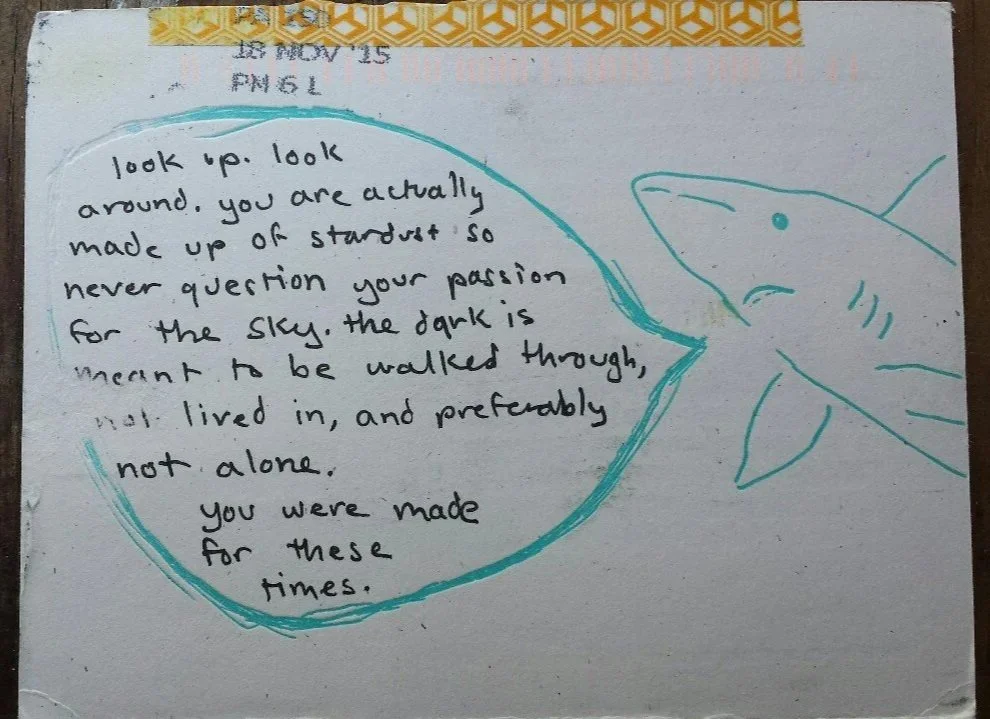 PA 250
18 NOV '15
PM 6 L
look up. look
around. you are actually
made up of stardust so
never question your passion
for the sky. the dark is
meant to be walked through,
not lived in, and preferably
not alone.
you were made
for these
times.